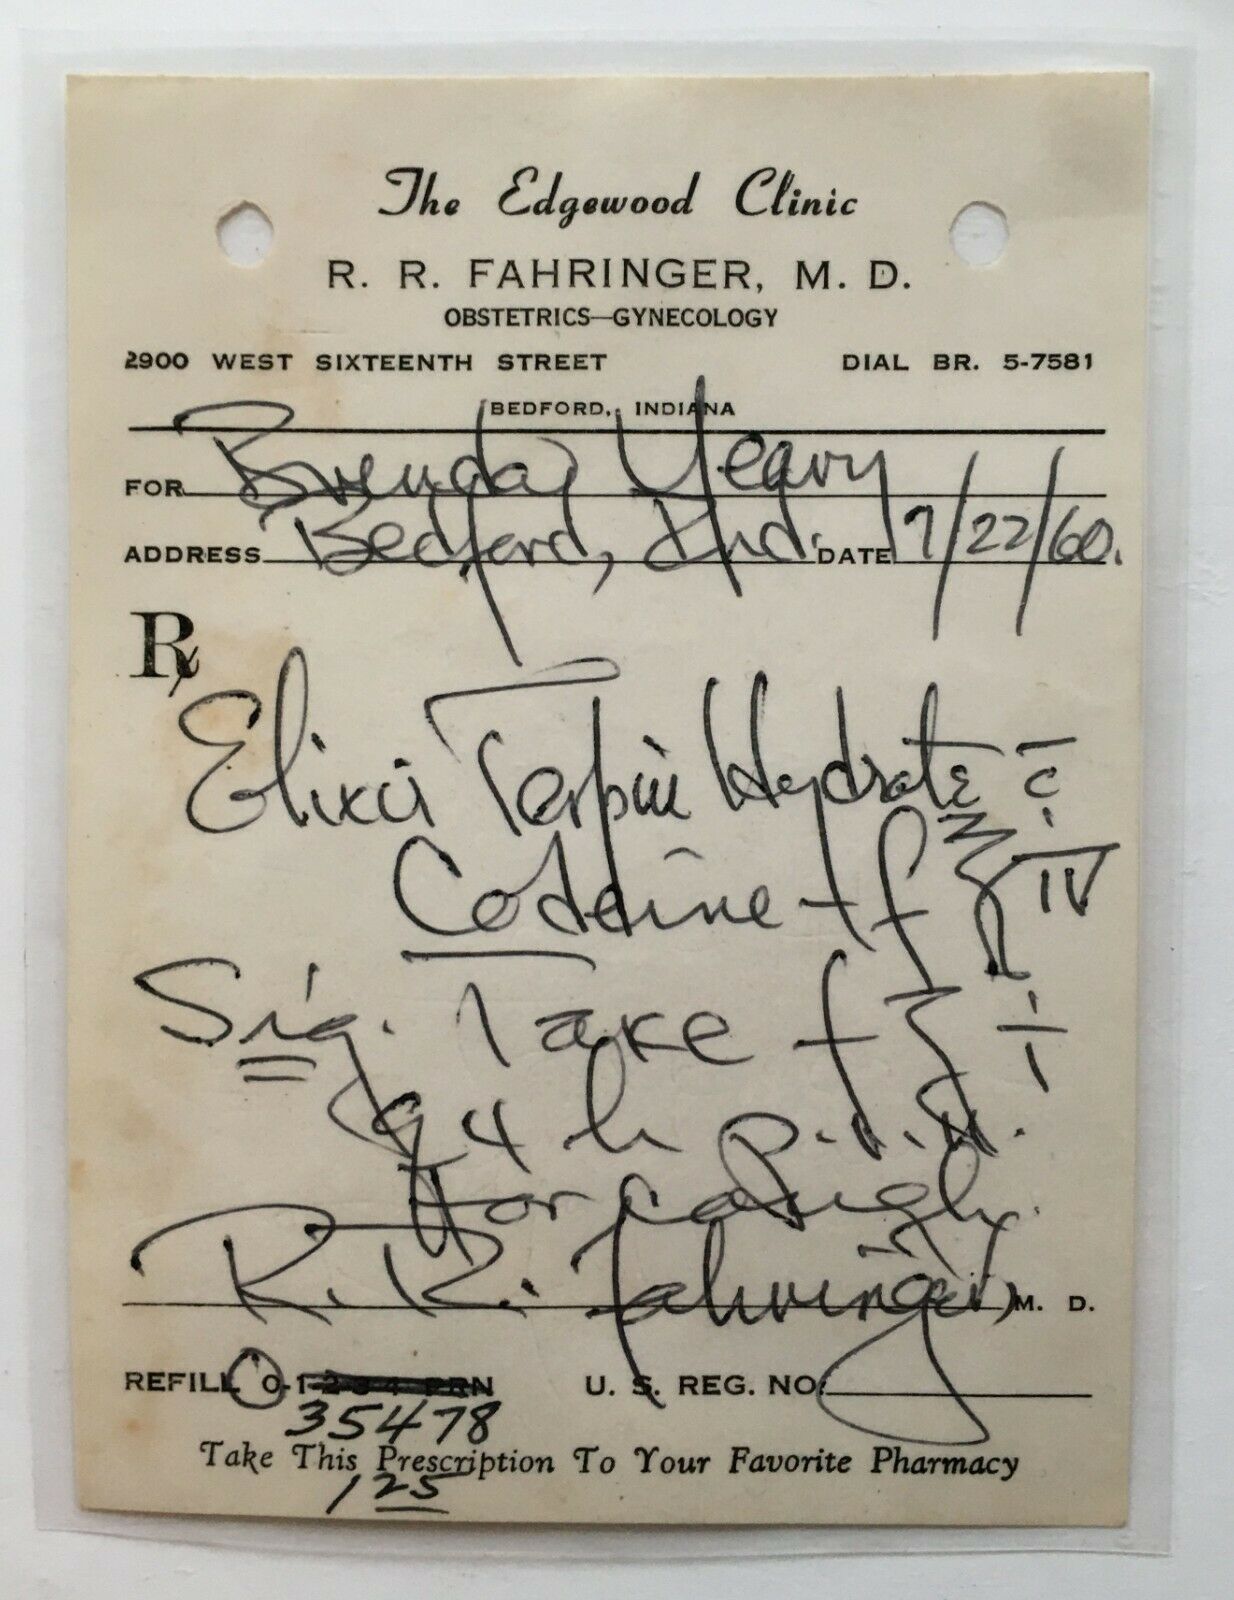 The Edgewood Clinic
R. R. FAHRINGER, M. D.
OBSTETRICS—GYNECOLOGY
2900 WEST SIXTEENTH STREET DIAL BR. 5-7581
BEDFORD, INDIANA
FOR Brenda Yeary
ADDRESS Bedford, Ind. DATE 7/22/60.
℞
Elixir Terpin Hydrate c̄
Codeine f℥ IV
Sig. Take fʒ i
q 4 h P.R.N.
for cough.
R. R. Fahringer, M. D.
REFILL 0-1-2-3-4 PRN U. S. REG. NO.
35478
Take This Prescription To Your Favorite Pharmacy
1 25